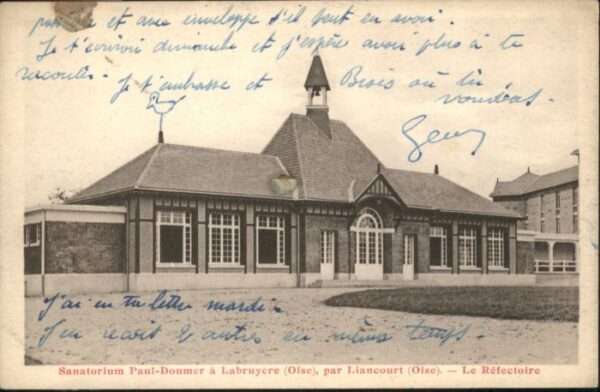 et avec enveloppe s'il faut en avoir.
Je t'écrirai dimanche et j'espère avoir plus à te
raconter. Je t'embrasse et Bisos où tu
voudras.
J'ai eu ta lettre mardi.
J'en reçoit 2 autres en même temps.
Sanatorium Paul-Doumer à Labruyère (Oise), par Liancourt (Oise). — Le Réfectoire